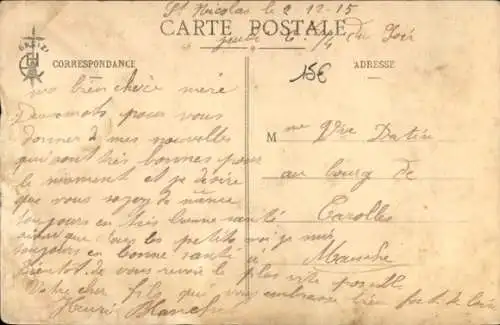 St Nicolas le 2-12-15
CARTE POSTALE
jeudi 6 h/4 du Soir
CORRESPONDANCE
15€
ADRESSE
ma bien cherè merè
Deux mots pour vous
donner de mes nouvelles
qui sont très bonnes pour
le moment et je désire
que vous soyez de même
toujours en très bonne santé
ainsi que tous les petits moi je suis
toujours en bonne santé a
Bientot de vous revoir le plus vite possible
Votre cher fils qui vous embrasse bien fort de loin
Henri Blanchet
Mme Vve Datin
au bourg de
Carolles
Manche